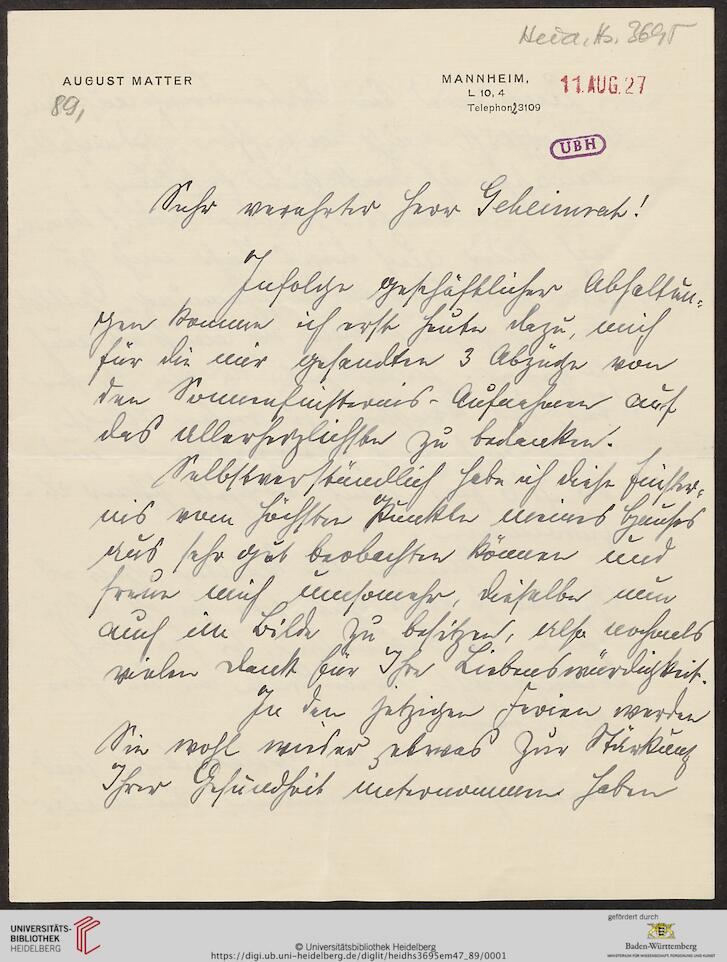 Heid. Hs. 3695
AUGUST MATTER
MANNHEIM,
L 10, 4
Telephon 3109
11. AUG. 27
89,
UBH
Sehr verehrter Herr Geheimrat!
Infolge geschäftlicher Abhaltun-
gen komme ich erst heute dazu, mich
für die mir gesandten 3 Abzüge von
den Sonnenfinsternis-Aufnahmen auf
das allerherzlichste zu bedanken.
Selbstverständlich habe ich diese Finster-
nis vom höchsten Punkte meines Hauses
aus sehr gut beobachten können und
freue mich umsomehr, dieselbe nun
auch im Bilde zu besitzen, also nochmals
vielen Dank für Ihre Liebenswürdigkeit.
In den jetzigen Ferien werden
Sie wohl wieder etwas zur Stärkung
Ihrer Gesundheit unternommen haben
UNIVERSITÄTS-
BIBLIOTHEK
HEIDELBERG
© Universitätsbibliothek Heidelberg
https://digi.ub.uni-heidelberg.de/diglit/heidhs3695em47_89/0001
gefördert durch
Baden-Württemberg
MINISTERIUM FÜR WISSENSCHAFT, FORSCHUNG UND KUNST